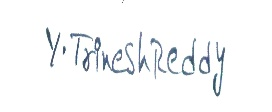 Y. TrineshReddy